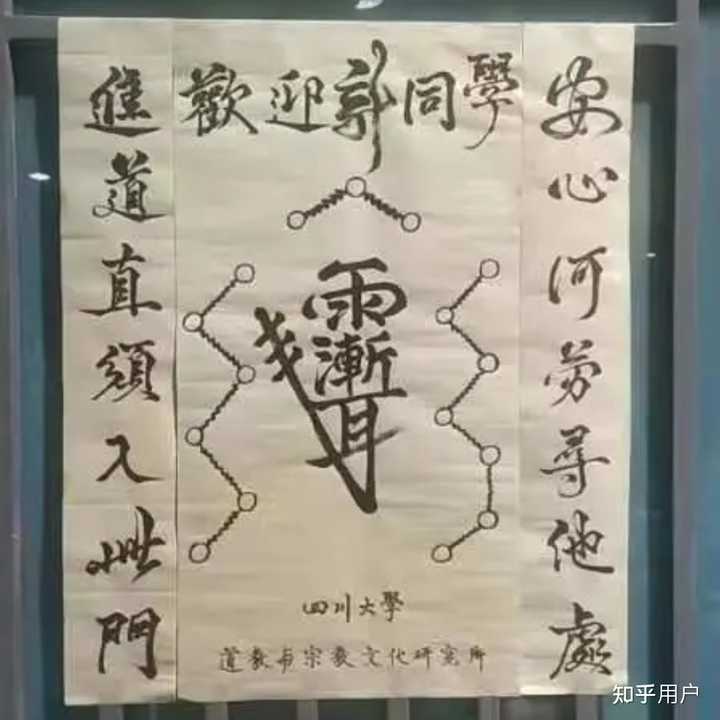 歡迎新同學
安心何勞尋他處
進道直須入此門
四川大學
道教与宗教文化研究所
知乎用户